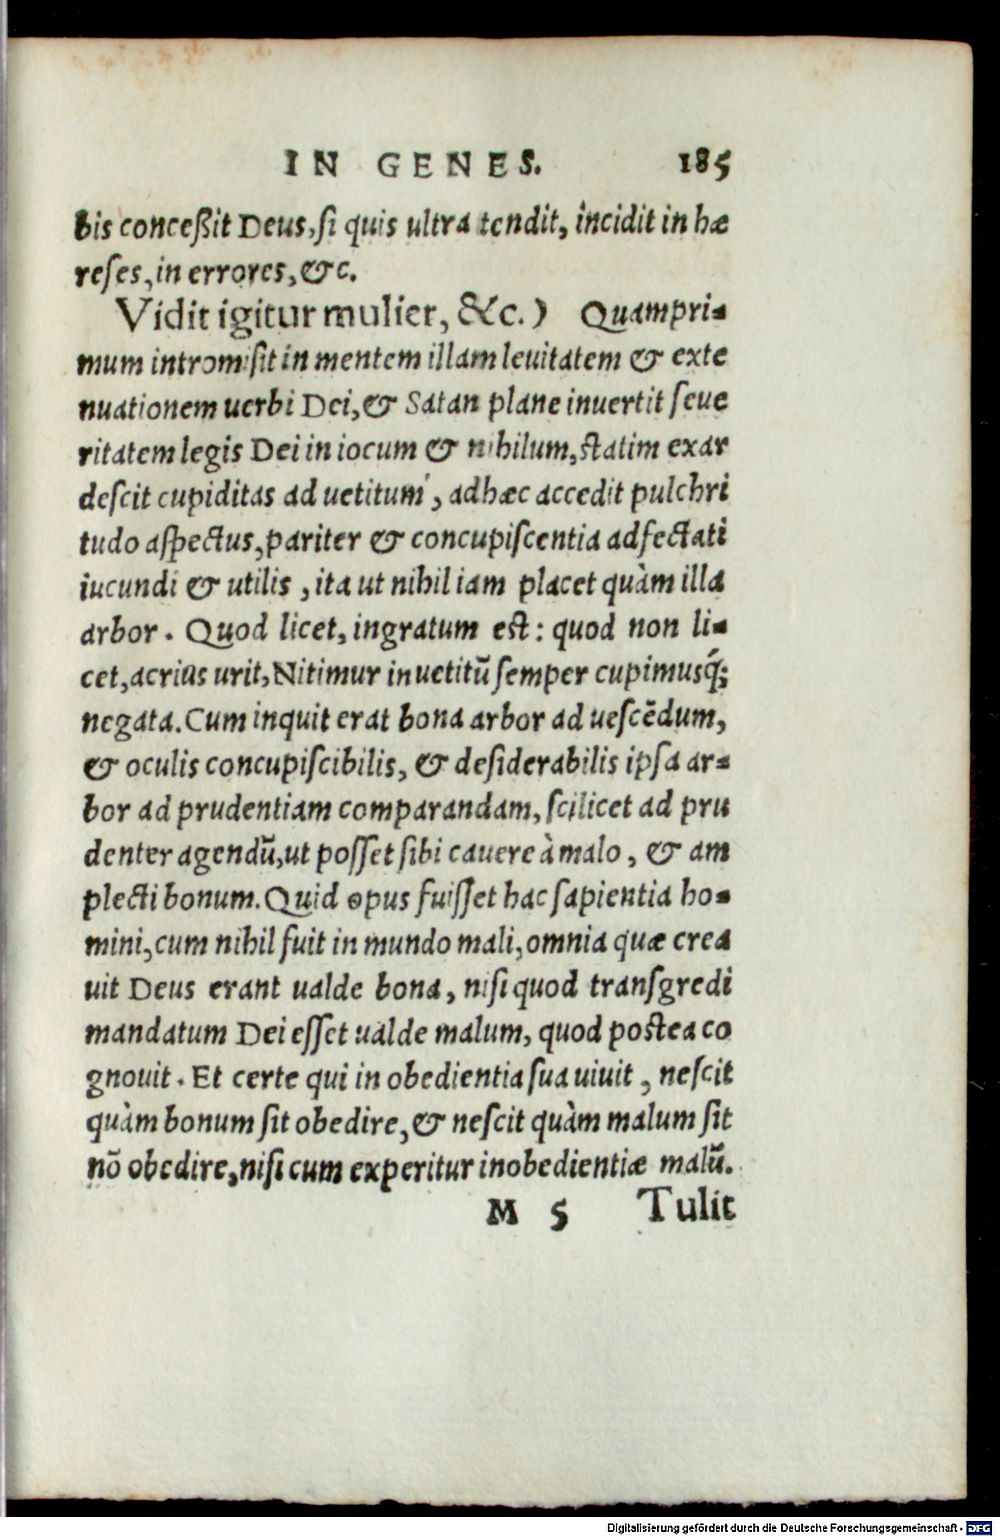 IN GENES. 185
bis conceßit Deus, ſi quis ultra tendit, incidit in hæ
reſes, in errores, &c.
Vidit igitur mulier, &c.) Quampri-
mum intromiſit in mentem illam leuitatem & exte
nuationem uerbi Dei, & Satan plane inuertit ſeue
ritatem legis Dei in iocum & nihilum, ſtatim exar
deſcit cupiditas ad uetitum, adhæc accedit pulchri
tudo aſpectus, pariter & concupiſcentia adfectati
iucundi & utilis, ita ut nihil iam placet quàm illa
arbor. Quod licet, ingratum eſt: quod non li-
cet, acrius urit, Nitimur in uetitū ſemper cupimusq́;
negata. Cum inquit erat bona arbor ad ueſcēdum,
& oculis concupiſcibilis, & deſiderabilis ipſa ar-
bor ad prudentiam comparandam, ſcilicet ad pru
denter agendū, ut poſſet ſibi cauere à malo, & am
plecti bonum. Quid opus fuiſſet hac ſapientia ho-
mini, cum nihil fuit in mundo mali, omnia quæ crea
uit Deus erant ualde bona, niſi quod tranſgredi
mandatum Dei eſſet ualde malum, quod poſtea co
gnouit. Et certe qui in obedientia ſua uiuit, neſcit
quàm bonum ſit obedire, & neſcit quàm malum ſit
nō obedire, niſi cum experitur inobedientiæ malū.
M 5 Tulit
Digitalisierung gefördert durch die Deutsche Forschungsgemeinschaft - DFG